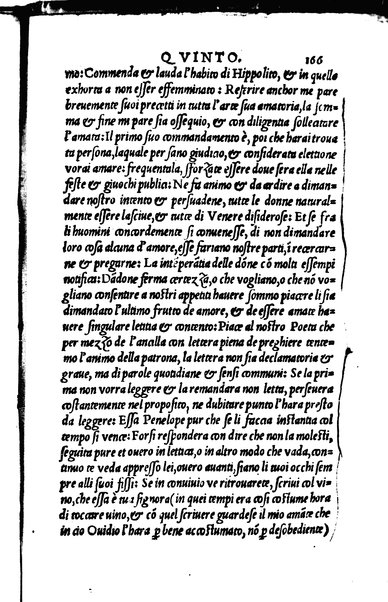 QVINTO. 166
mo: Commenda & lauda l'habito di Hippolito, & in quello
exhorta a non esser effeminato: Referire anchor me pare
breuemente suoi precetti in tutta l'arte sua amatoria, la som‑
ma & fine mi par sia ossequio, & con diligentia sollecitare
l'amata: Il primo suo commandamento è, poi che harai troua
ta persona, laquale per sano giudicio, & considerata elettione
vorai amare: frequentala, sforzãti essere doue sera ella nelle
feste & giuochi publici: Ne fa animo & da ardire a diman
dare nostro intento & persuadene, tutte le donne natural‑
mente essere lasciue, & tutte di Venere disiderose: Et se fra
li huomini concordemente si conuenesse, di non dimandare
loro cosa alcuna d'amore, esse fariano nostre parti, i recercar‑
ne & pregarne: La intẽperãtia delle dõne cõ molti essempi
notifica: Dãdone ferma certezza, o che vogliano, o che nõ vo
gliano consentire a nostri appetiti hauere sommo piacere li sia
dimandato l'ultimo frutto de amore, & de essere amate ha
uere singulare letitia & contento: Piace al nostro Poeta che
per mezzo de l'ancilla con lettera piena de preghiere tente‑
mo l'animo della patrona, la lettera non sia declamatoria &
graue, ma di parole quotidiane & sensi communi: Se la pri
ma non vorra leggere & la remandara non letta, perseuera
costantemente nel proposito, ne dubitare punto l'hara presto
da leggere: Essa Penelope pur che li faccia instantia col
tempo si vence: Forsi respondera con dire che non la molesti,
seguita pure et ouero in lettica, o in altro modo che vada, con‑
tinuo te veda appresso lei, ouero auanti, siano li tuoi occhi sem
pre alli suoi fissi: Se in conuiuio ve ritrouarete, scriui col vi‑
no, che essa è tua signora (in quei tempi era cosi costume hora
di toccare uino, & cõ quel scriuere guardese il mio amãte che
in cio Ouidio l'hara ꝑ bene accostumato, nõ ꝑ desobediente)